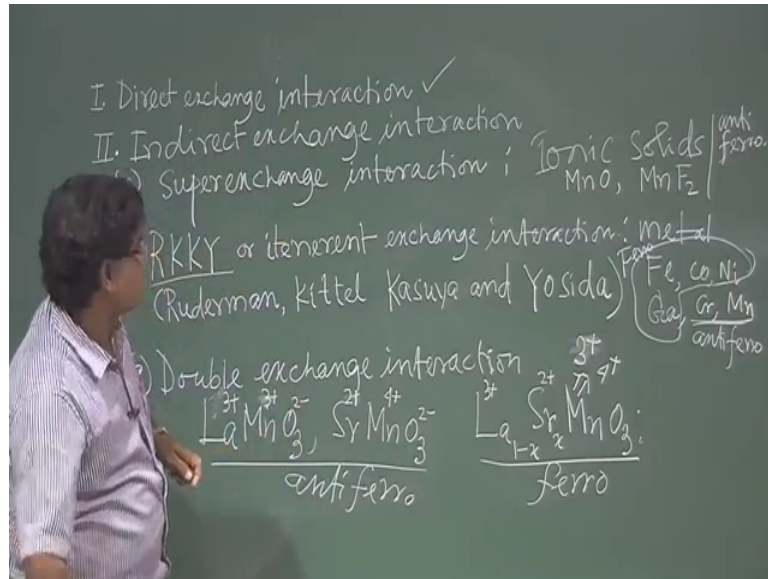 I. Direct exchange interaction ✓
II. Indirect exchange interaction
) Superexchange interaction : Ionic Solids | anti ferro.
MnO, MnF₂
RKKY or itenerent exchange interaction : metal
(Ruderman, Kittel Kasuya and Yosida) Ferro Fe, Co, Ni
Cr, Mn
antiferro
) Double exchange interaction
La³⁺Mn³⁺O₃²⁻, Sr²⁺Mn⁴⁺O₃²⁻ La³⁺₁₋ₓSr²⁺ₓMn³⁺ ⁴⁺O₃ :
antiferro ferro